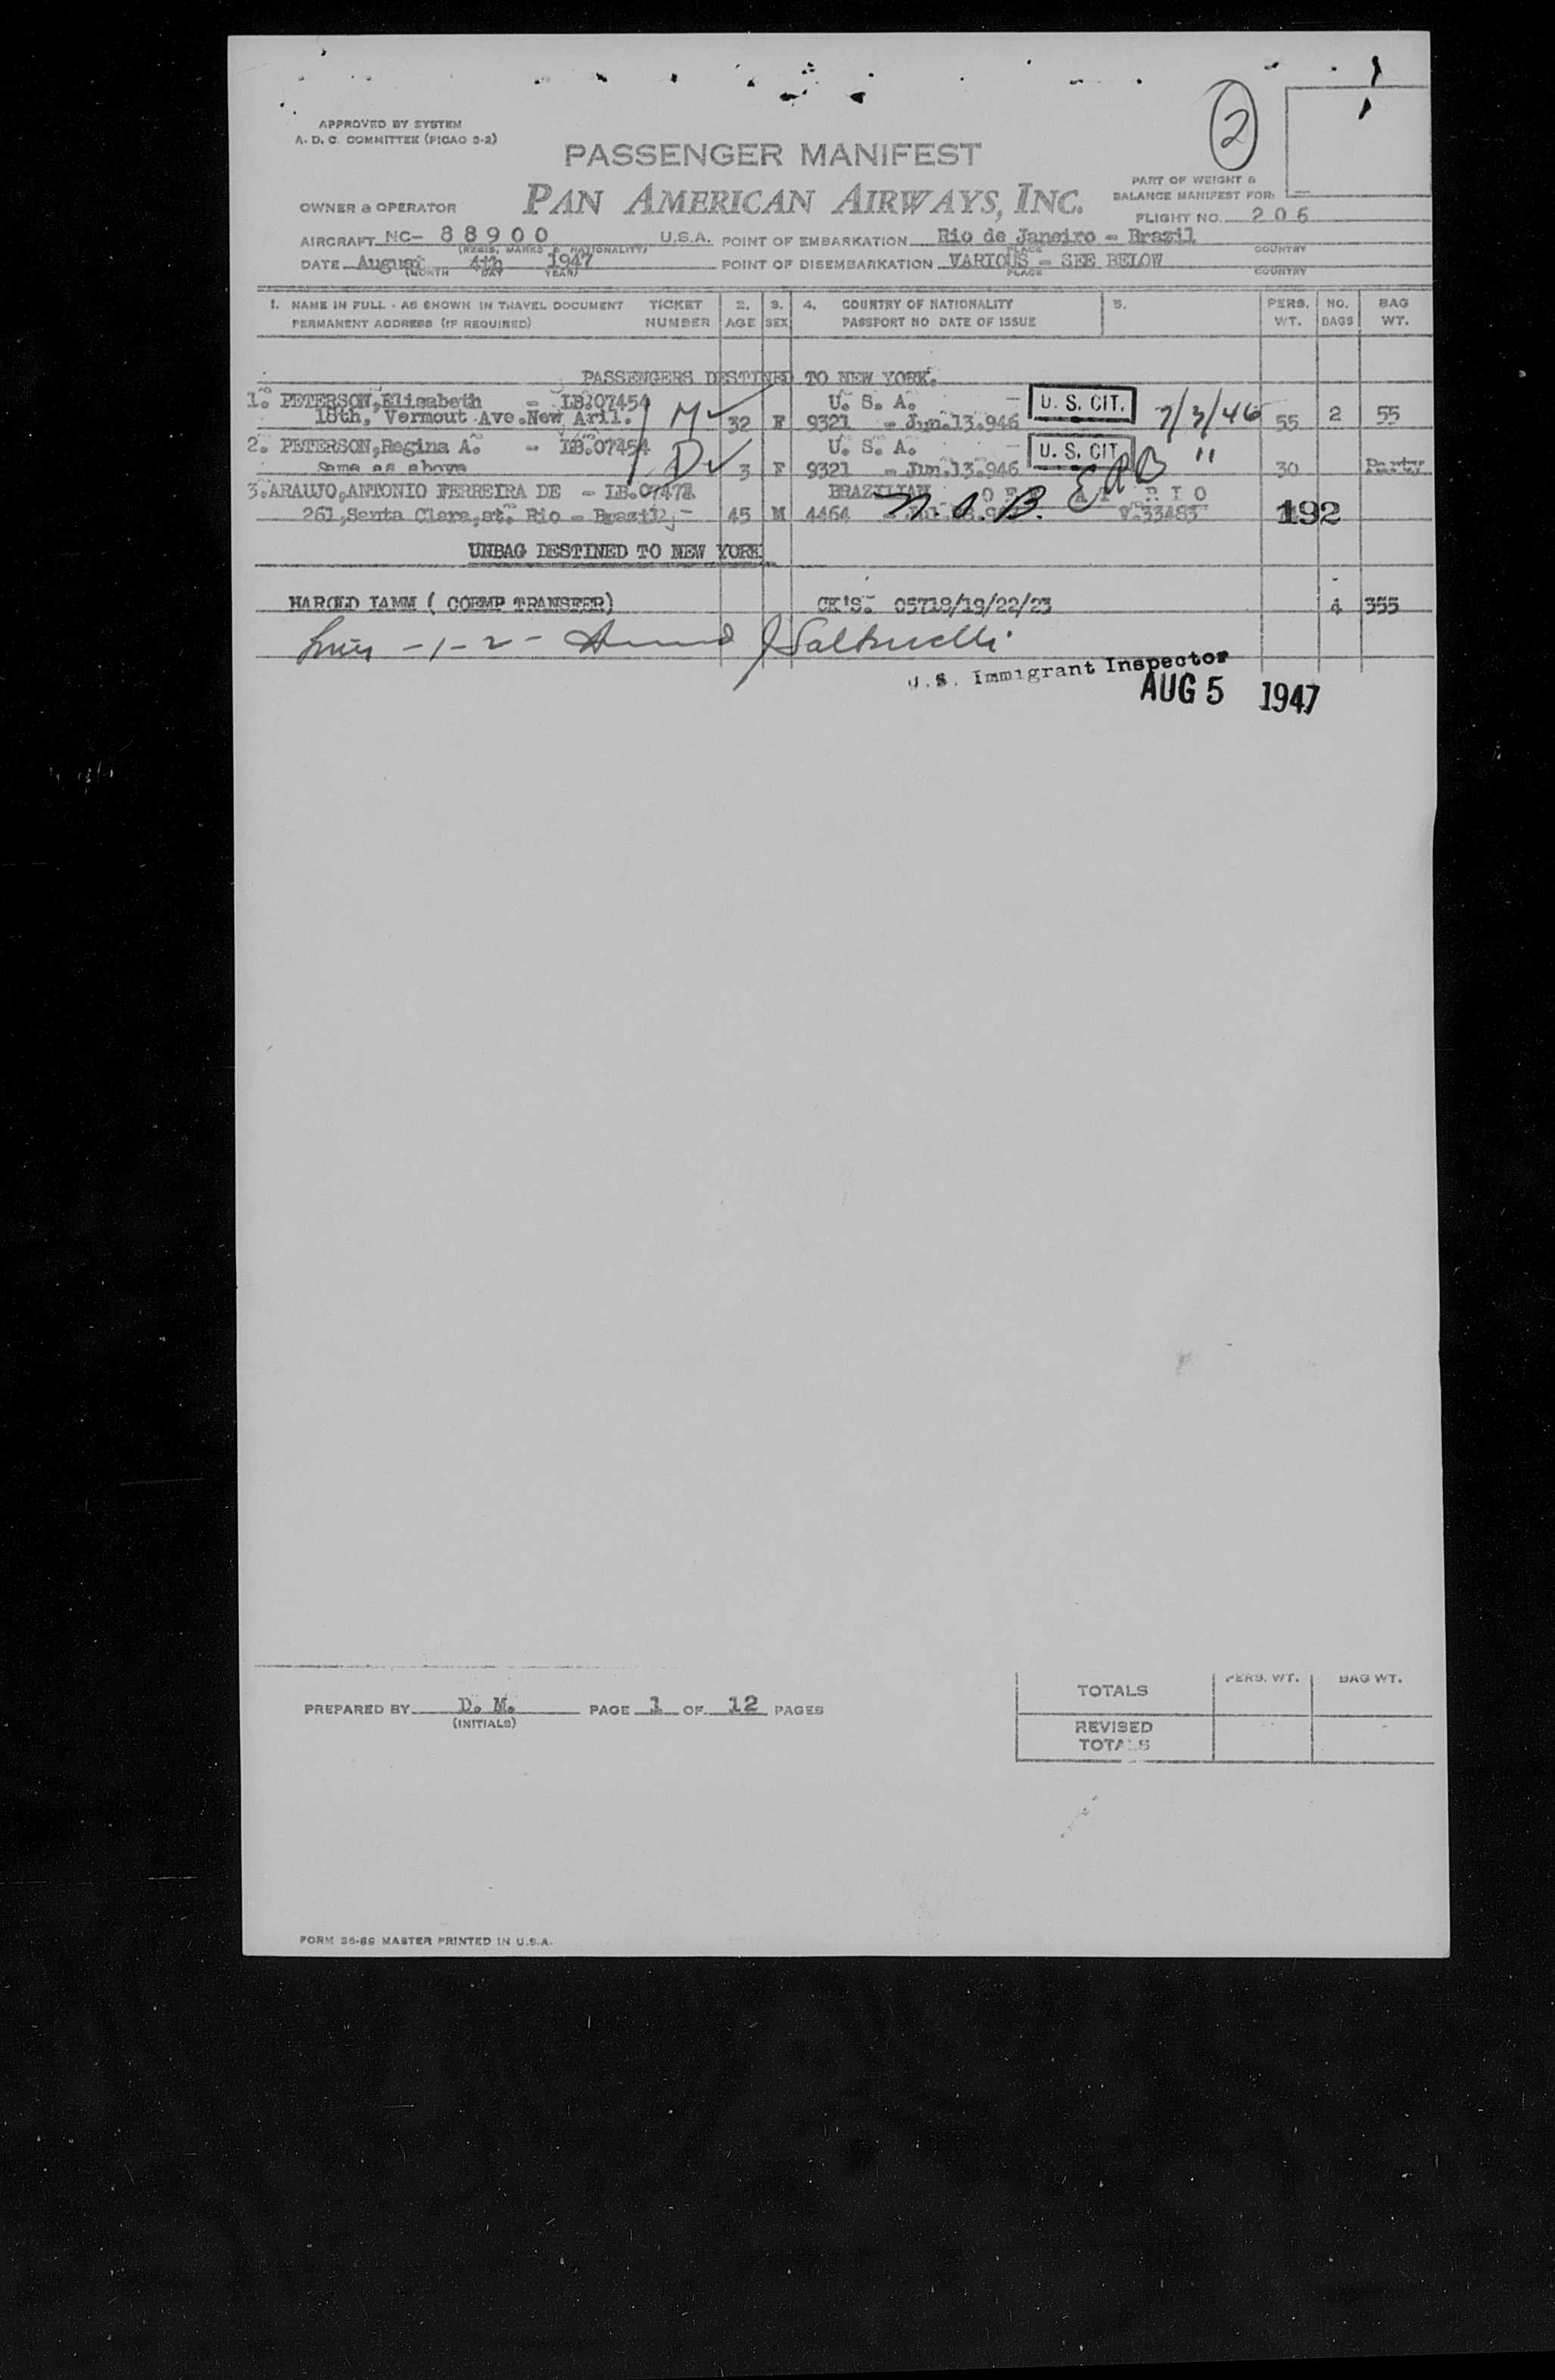 APPROVED BY SYSTEM
A. D. C. COMMITTEE (PICAO 9-2)
2
PASSENGER MANIFEST
PART OF WEIGHT &
BALANCE MANIFEST FOR:
OWNER & OPERATOR PAN AMERICAN AIRWAYS, INC.
FLIGHT NO. 206
AIRCRAFT NC- 88900 U.S.A. POINT OF EMBARKATION Rio de Janeiro - Brazil
(REGIS. MARKS & NATIONALITY) PLACE COUNTRY
DATE August 4th 1947 POINT OF DISEMBARKATION VARIOUS - SEE BELOW
(MONTH DAY YEAR) PLACE COUNTRY
1. NAME IN FULL - AS SHOWN IN TRAVEL DOCUMENT TICKET 2. 3. 4. COUNTRY OF NATIONALITY 5. PERS. NO. BAG
PERMANENT ADDRESS (IF REQUIRED) NUMBER AGE SEX PASSPORT NO DATE OF ISSUE WT. BAGS WT.
PASSENGERS DESTINED TO NEW YORK.
1. PETERSON,Elisabeth - LB.07454 U. S. A. - U. S. CIT. 7/3/46
18th, Vermout Ave.New Aril. M 32 F 9321 - Jun.13.946 55 2 55
2. PETERSON,Regina A. - LB.07454 U. S. A. - U. S. CIT. "
Same as above D 3 F 9321 - Jun.13.946 30 Party
3.ARAUJO,ANTONIO FERREIRA DE - LB.07478 BRAZILIAN OFF AT RIO
261,Santa Clara,st. Rio - Brazil 45 M 4464 N.O.B. V.33483 192
UNBAG DESTINED TO NEW YORK
HAROLD LAMM ( COEMP TRANSFER) CK'S. 05718/19/22/23 4 355
-1-2- J Saltrucelli
U.S. Immigrant Inspector
AUG 5 1947
PREPARED BY D. M. PAGE 1 OF 12 PAGES
(INITIALS)
PERS. WT. BAG WT.
TOTALS
REVISED
TOTALS
FORM 36-86 MASTER PRINTED IN U.S.A.